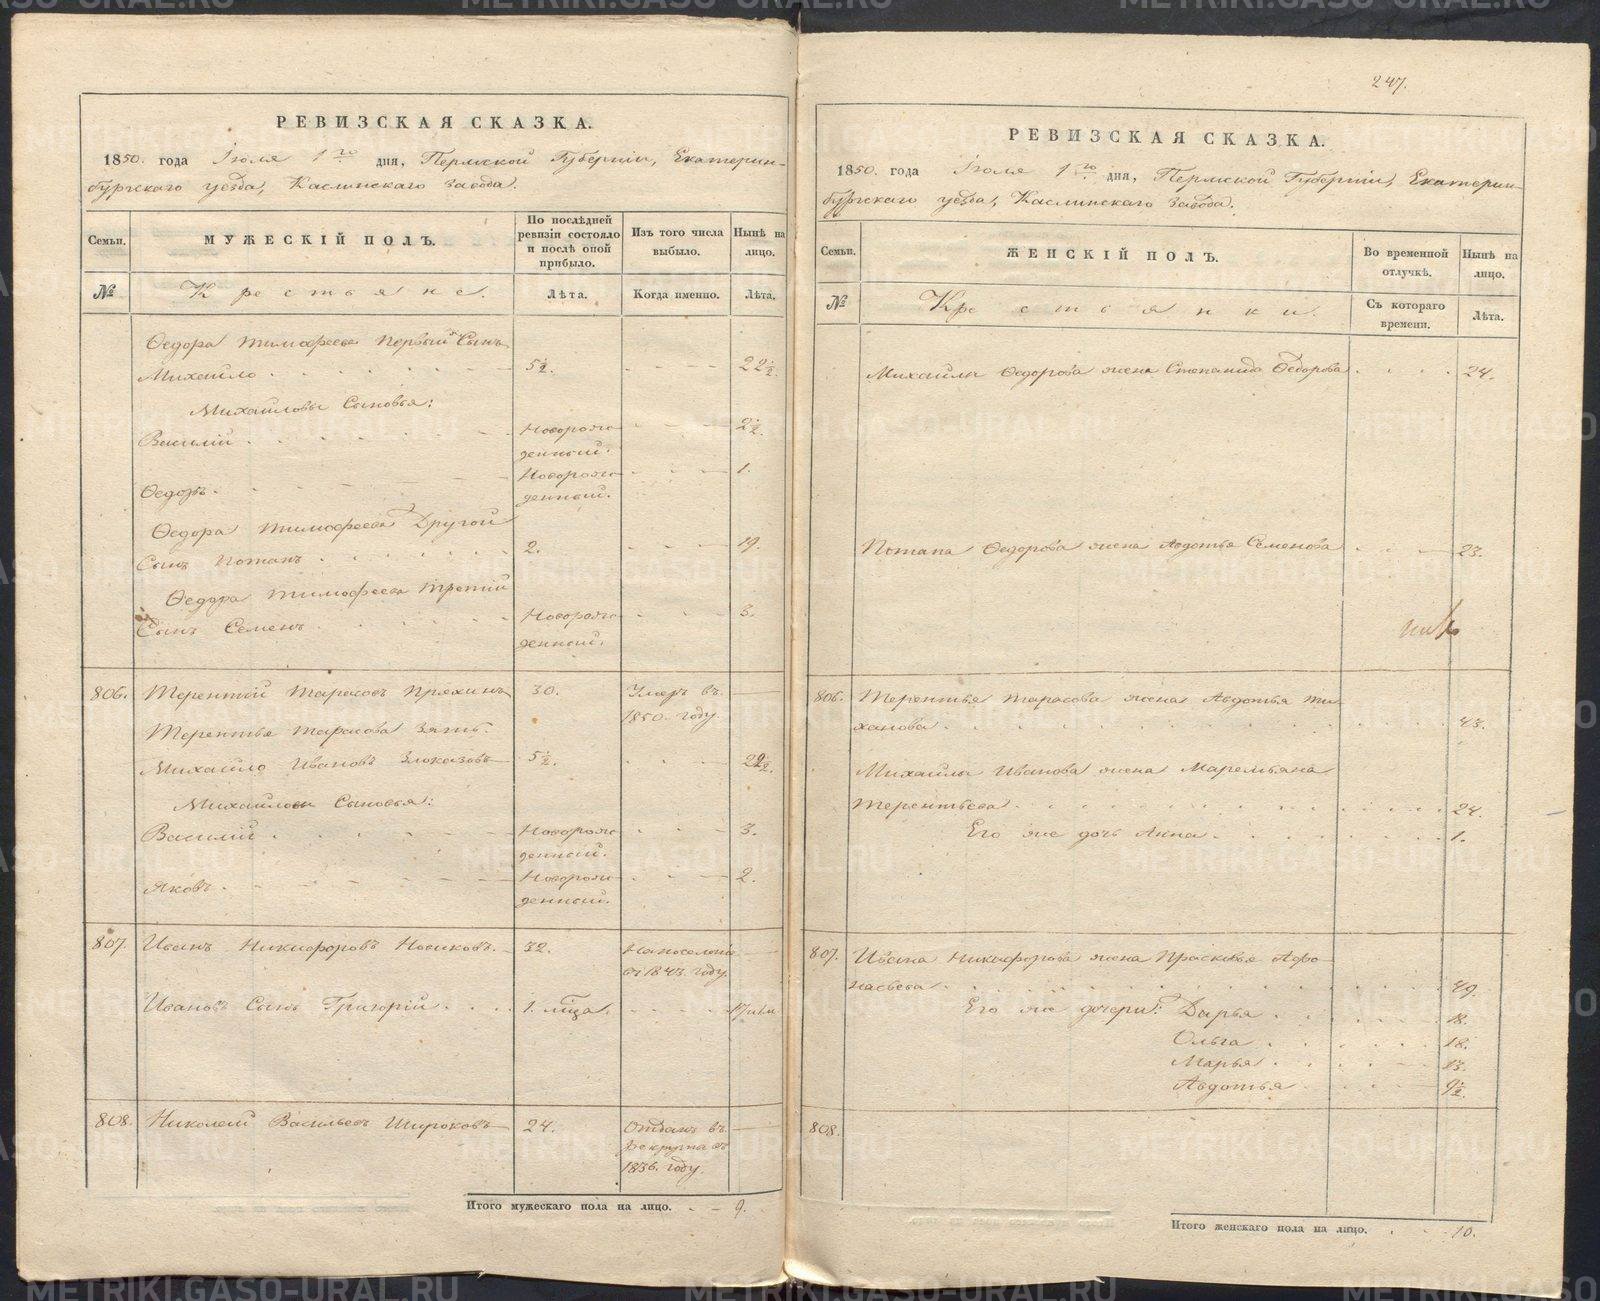 247.
РЕВИЗСКАЯ СКАЗКА.
1850. года Іюля 1го дня, Пермской Губерніи, Екатерин-
бургскаго уезда, Каслинскаго Завода.
Семьи.
МУЖЕСКІЙ ПОЛЪ.
По послѣдней ревизіи состояло и послѣ оной прибыло.
Изъ того числа выбыло.
Нынѣ на лицо.
№
Крестьяне.
Лѣта.
Когда именно.
Лѣта.
Ѳедора Тимофеева первый Сынъ
Михайло 5½. 22½.
Михайловы Сыновья:
Василій Новорож-денный. 2½.
Ѳедоръ Новорож-денный. 1.
Ѳедора Тимофеева Другой
Сынъ Потапъ 2. 19.
Ѳедора Тимофеева третій
Сынъ Семенъ Новорож-денный. 3.
806. Терентій Тарасовъ 30. Умеръ въ 1850. году.
Терентья Тарасова Зять.
Михайло Ивановъ Злоказовъ 5½. 22½.
Михайловы Сыновья:
Василій Новорож-денный. 3.
Яковъ Новорож-денный. 2.
807. Иванъ Никифоровъ Новиковъ. 32. году.
Ивановъ Сынъ Григорій 1.
808. Николай Васильевъ Широковъ 24. Отданъ въ Рекруты въ 1836. году.
Итого мужескаго пола на лицо. 9.
РЕВИЗСКАЯ СКАЗКА.
1850. года Іюля 1го дня, Пермской Губерніи, Екатерин-
бургскаго уезда, Каслинскаго Завода.
Семьи.
ЖЕНСКІЙ ПОЛЪ.
Во временной отлучкѣ.
Нынѣ на лицо.
№
Крестьянки.
Съ котораго времени.
Лѣта.
Михайлы Ѳедорова жена Степанида Ѳедорова 24.
Потапа Ѳедорова жена Авдотья Семенова 23.
806. Терентья Тарасова жена Авдотья Ти-
ханова 43.
Михайлы Иванова жена Маремьяна
Терентьева 24.
Его же дочь Анна 1.
807. Ивана Никифорова жена Прасковья Афо-
насьева 49.
Его же дочери: Дарья 18.
Ольга 18.
Марья 13.
Авдотья 9½.
808.
Итого женскаго пола на лицо. 10.
METRIKI.GASO-URAL.RU